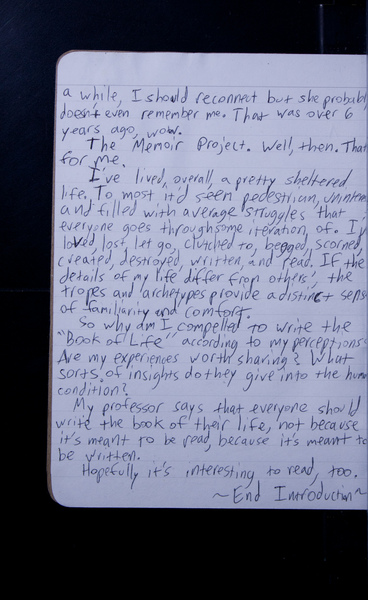 a while, I should reconnect but she probabl
doesn't even remember me. That was over 6
years ago, wow.
The Memoir Project. Well, then. That
for me.
I've lived, overall, a pretty sheltered
life. To most it'd seem pedestrian, uninten
and filled with average struggles that
everyone goes through some iteration, of. I'v
loved, lost, let go, clutched to, begged, scorned,
created, destroyed, written, and read. If the
details of my life differ from others', the
tropes and archetypes provide a distinct sens
of familiarity and comfort.
So why am I compelled to write the
"Book of Life" according to my perceptions?
Are my experiences worth sharing? What
sorts of insights do they give into the huma
condition?
My professor says that everyone should
write the book of their life, not because
it's meant to be read, because it's meant to
be written.
Hopefully it's interesting to read, too.
~End Introduction~